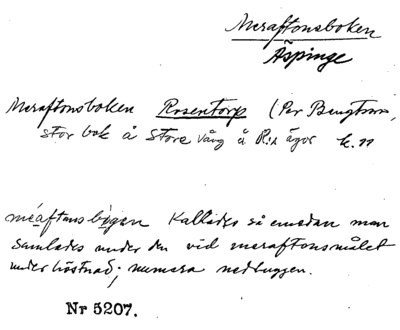 Meraftonsboken
Äspinge
Meraftonsboken Rosentorp (Per Bengtsson,
stor bok å Store vång å R:s ägor k. 11
méaftans bögen Kallades så emedan man
samlades under den vid meraftonsmålet
under höstnad; numera nedhuggen.
Nr 5207.